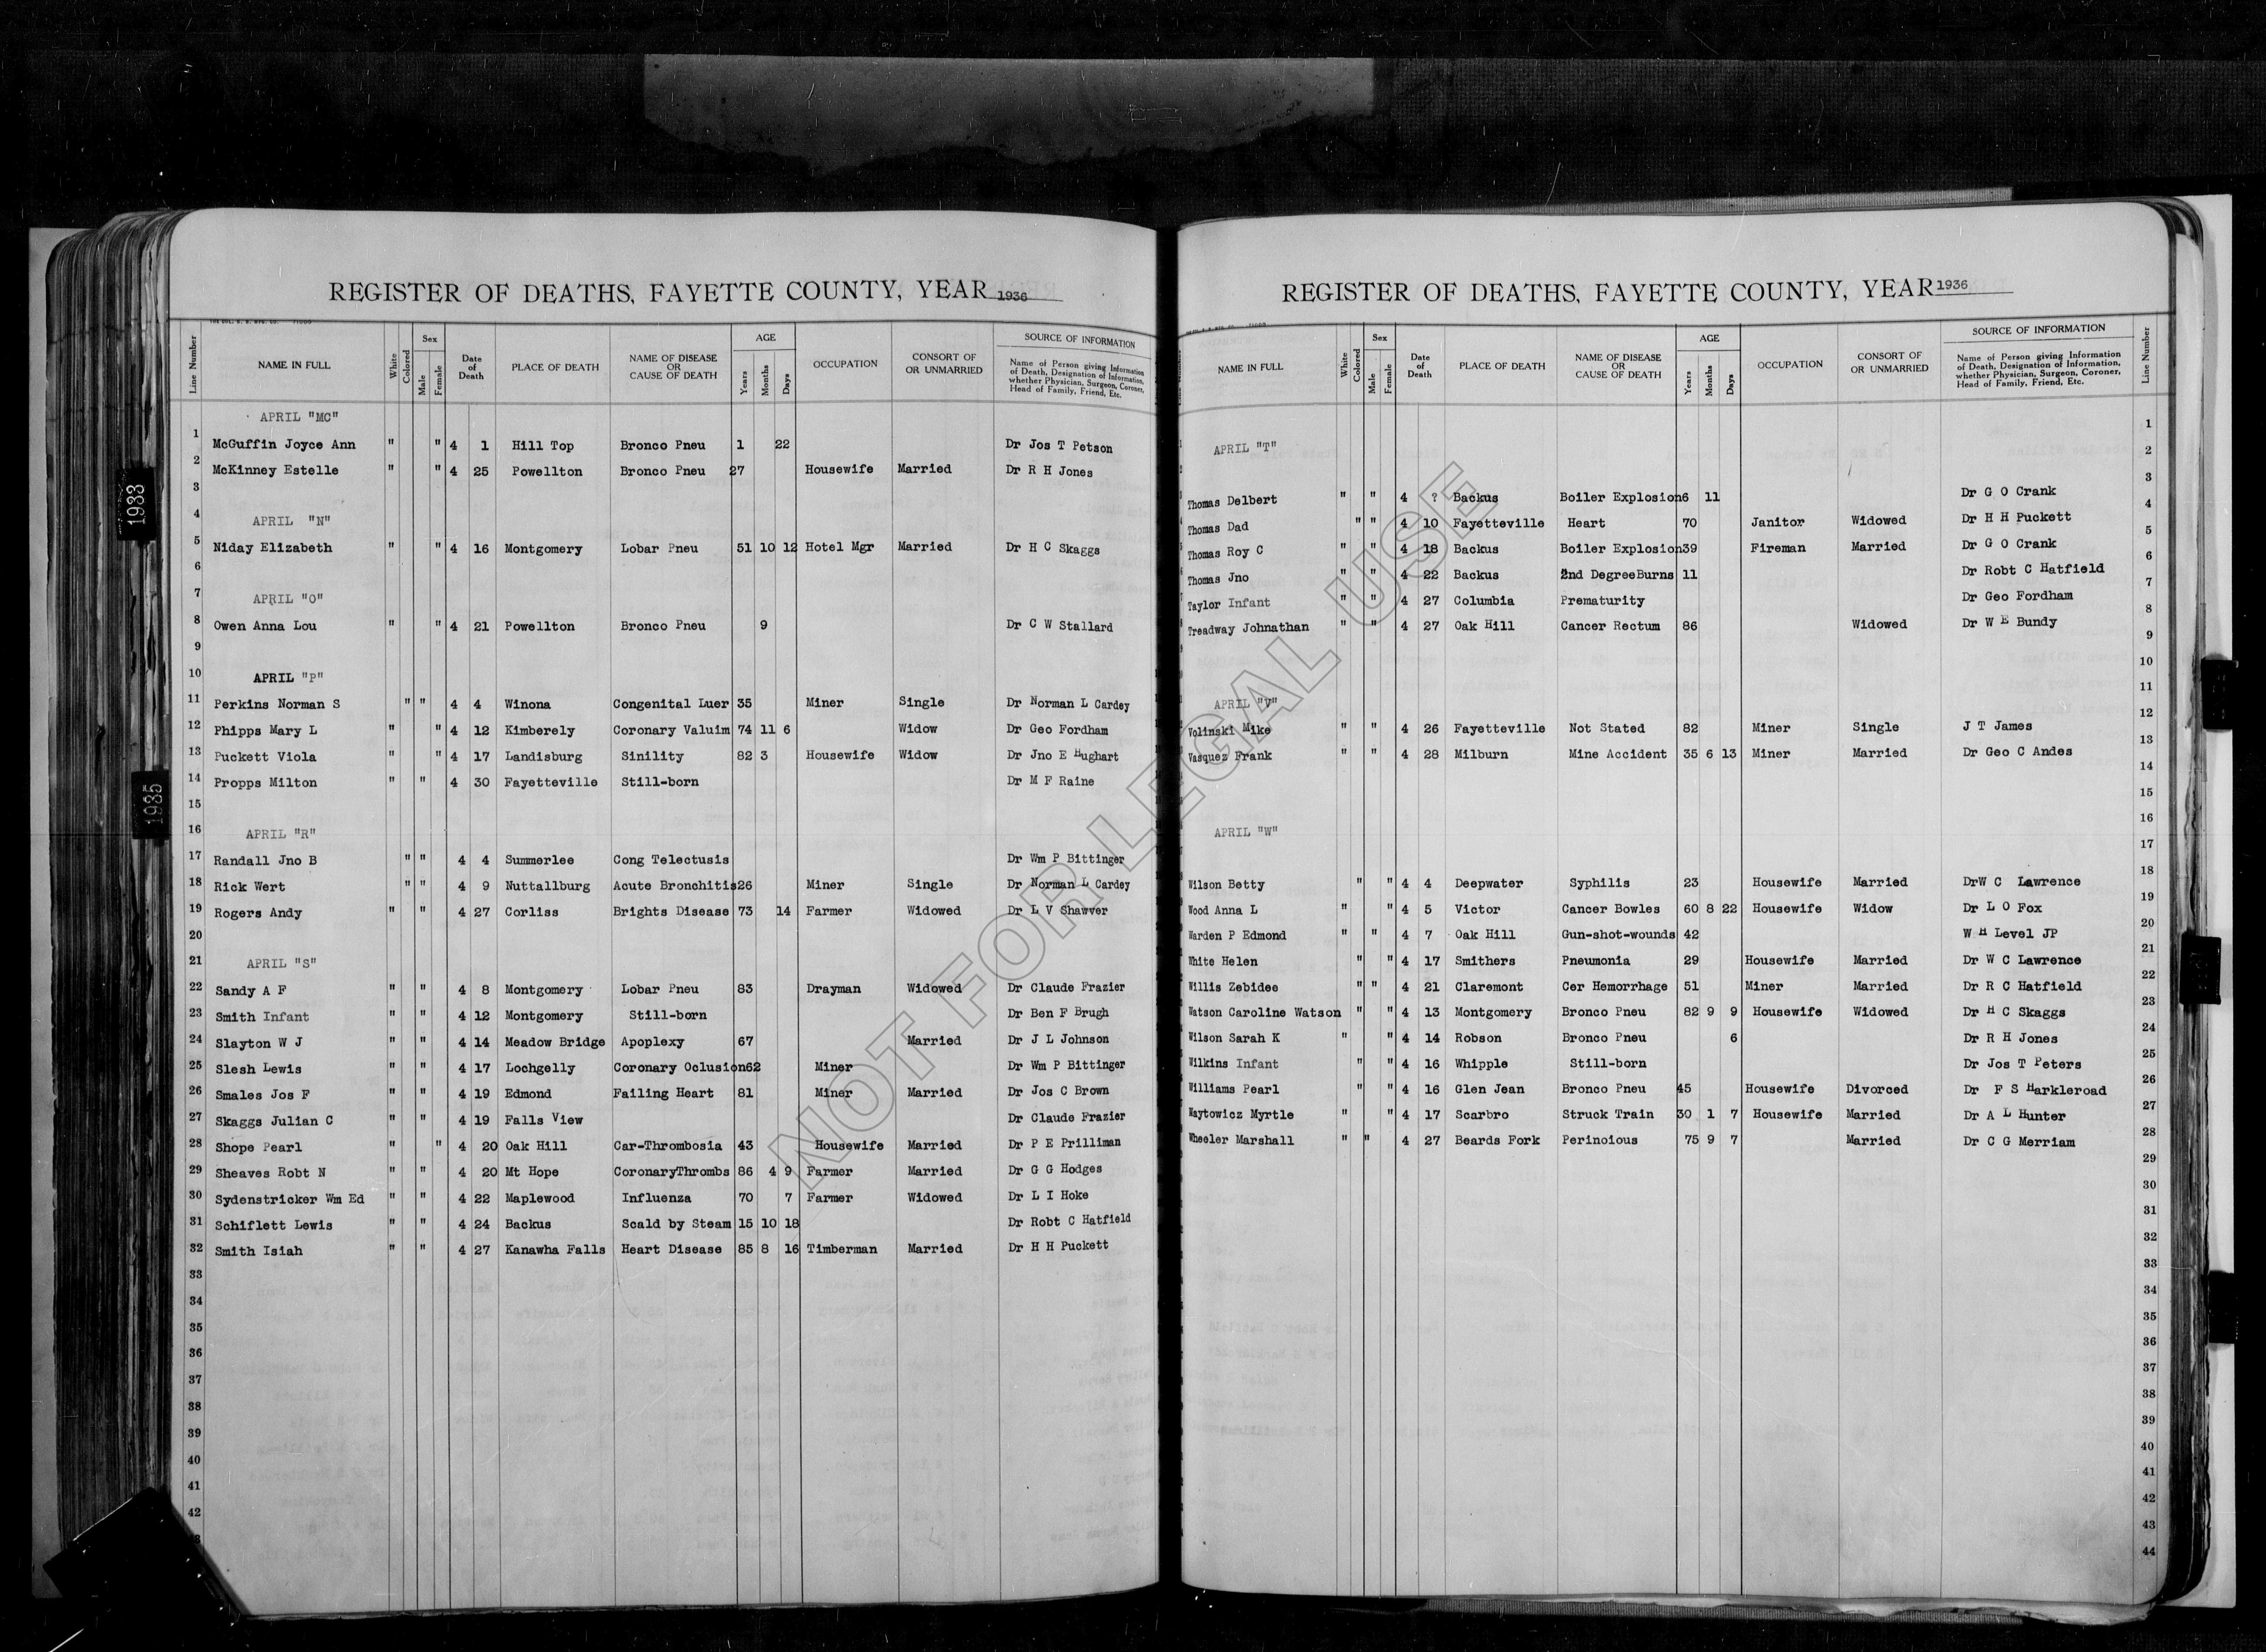 REGISTER OF DEATHS, FAYETTE COUNTY, YEAR 1936
Line Number
NAME IN FULL
White
Colored
Sex
Male
Female
Date of Death
PLACE OF DEATH
NAME OF DISEASE OR CAUSE OF DEATH
AGE
Years
Months
Days
OCCUPATION
CONSORT OF OR UNMARRIED
SOURCE OF INFORMATION
Name of Person giving Information of Death, Designation of Information, whether Physician, Surgeon, Coroner, Head of Family, Friend, Etc.
APRIL "MC"
1 McGuffin Joyce Ann " " 4 1 Hill Top Bronco Pneu 1 22 Dr Jos T Petson
2 McKinney Estelle " " 4 25 Powellton Bronco Pneu 27 Housewife Married Dr R H Jones
3
4 APRIL "N"
5 Niday Elizabeth " " 4 16 Montgomery Lobar Pneu 51 10 12 Hotel Mgr Married Dr H C Skaggs
6
7 APRIL "O"
8 Owen Anna Lou " " 4 21 Powellton Bronco Pneu 9 Dr C W Stallard
9
10 APRIL "P"
11 Perkins Norman S " " 4 4 Winona Congenital Luer 35 Miner Single Dr Norman L Cardey
12 Phipps Mary L " " 4 12 Kimberely Coronary Valuim 74 11 6 Widow Dr Geo Fordham
13 Puckett Viola " " 4 17 Landisburg Sinility 82 3 Housewife Widow Dr Jno E Hughart
14 Propps Milton " " 4 30 Fayetteville Still-born Dr M F Raine
15
16 APRIL "R"
17 Randall Jno B " " 4 4 Summerlee Cong Telectusis Dr Wm P Bittinger
18 Rick Wert " " 4 9 Nuttallburg Acute Bronchitis 26 Miner Single Dr Norman L Cardey
19 Rogers Andy " " 4 27 Corliss Brights Disease 73 14 Farmer Widowed Dr L V Shawver
20
21 APRIL "S"
22 Sandy A F " " 4 8 Montgomery Lobar Pneu 83 Drayman Widowed Dr Claude Frazier
23 Smith Infant " " 4 12 Montgomery Still-born Dr Ben F Brugh
24 Slayton W J " " 4 14 Meadow Bridge Apoplexy 67 Married Dr J L Johnson
25 Slesh Lewis " " 4 17 Lochgelly Coronary Oclusion 62 Miner Dr Wm P Bittinger
26 Smales Jos F " " 4 19 Edmond Failing Heart 81 Miner Married Dr Jos C Brown
27 Skaggs Julian C " " 4 19 Falls View Dr Claude Frazier
28 Shope Pearl " " 4 20 Oak Hill Car-Thrombosia 43 Housewife Married Dr P E Prilliman
29 Sheaves Robt N " " 4 20 Mt Hope CoronaryThrombs 86 4 9 Farmer Married Dr G G Hodges
30 Sydenstricker Wm Ed " " 4 22 Maplewood Influenza 70 7 Farmer Widowed Dr L I Hoke
31 Schiflett Lewis " " 4 24 Backus Scald by Steam 15 10 18 Dr Robt C Hatfield
32 Smith Isiah " " 4 27 Kanawha Falls Heart Disease 85 8 16 Timberman Married Dr H H Puckett
33
34
35
36
37
38
39
40
41
42
1933
1935
REGISTER OF DEATHS, FAYETTE COUNTY, YEAR 1936
NAME IN FULL
White
Colored
Sex
Male
Female
Date of Death
PLACE OF DEATH
NAME OF DISEASE OR CAUSE OF DEATH
AGE
Years
Months
Days
OCCUPATION
CONSORT OF OR UNMARRIED
SOURCE OF INFORMATION
Name of Person giving Information of Death, Designation of Information, whether Physician, Surgeon, Coroner, Head of Family, Friend, Etc.
Line Number
1
APRIL "T" 2
Thomas Delbert " " 4 ? Backus Boiler Explosion 6 11 Dr G O Crank 3
Thomas Dad " " 4 10 Fayetteville Heart 70 Janitor Widowed Dr H H Puckett 4
Thomas Roy C " " 4 18 Backus Boiler Explosion 39 Fireman Married Dr G O Crank 5
Thomas Jno " " 4 22 Backus 2nd DegreeBurns 11 Dr Robt C Hatfield 6
Taylor Infant " " 4 27 Columbia Prematurity Dr Geo Fordham 7
Treadway Johnathan " " 4 27 Oak Hill Cancer Rectum 86 Widowed Dr W E Bundy 8
9
10
APRIL "V" 11
Volinski Mike " " 4 26 Fayetteville Not Stated 82 Miner Single J T James 12
Vasquez Frank " " 4 28 Milburn Mine Accident 35 6 13 Miner Married Dr Geo C Andes 13
14
15
APRIL "W" 16
17
Wilson Betty " " 4 4 Deepwater Syphilis 23 Housewife Married DrW C Lawrence 18
Wood Anna L " " 4 5 Victor Cancer Bowles 60 8 22 Housewife Widow Dr L O Fox 19
Warden P Edmond " " 4 7 Oak Hill Gun-shot-wounds 42 W H Level JP 20
White Helen " " 4 17 Smithers Pneumonia 29 Housewife Married Dr W C Lawrence 21
Willis Zebidee " " 4 21 Claremont Cer Hemorrhage 51 Miner Married Dr R C Hatfield 22
Watson Caroline Watson " " 4 13 Montgomery Bronco Pneu 82 9 9 Housewife Widowed Dr H C Skaggs 23
Wilson Sarah K " " 4 14 Robson Bronco Pneu 6 Dr R H Jones 24
Wilkins Infant " " 4 16 Whipple Still-born Dr Jos T Peters 25
Williams Pearl " " 4 16 Glen Jean Bronco Pneu 45 Housewife Divorced Dr F S Harkleroad 26
Waytowicz Myrtle " " 4 17 Scarbro Struck Train 30 1 7 Housewife Married Dr A L Hunter 27
Wheeler Marshall " " 4 27 Beards Fork Perinoious 75 9 7 Married Dr C G Merriam 28
29
30
31
32
33
34
35
36
37
38
39
40
41
42
43
44
NOT FOR LEGAL USE